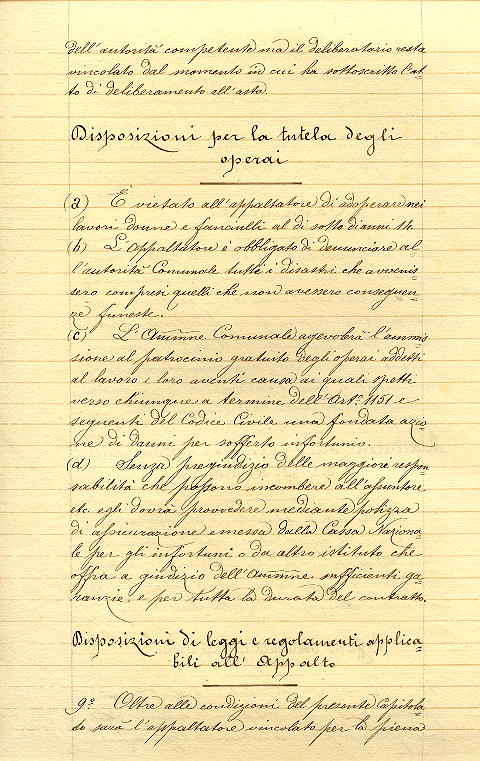 dell'autorità competente ma il deliberatario resta
vincolato dal momento in cui ha sottoscritto l'at
to di deliberamento all'asta.
Disposizioni per la tutela degli
operai
(a) È vietato all'appaltatore di adoperare nei
lavori donne e fanciulli al di sotto di anni 14.
(b) L'appaltatore è obbligato di denunciare al=
l'autorità Comunale tutti i disastri che avvenis
sero compresi quelli che non avessero conseguen=
ze funeste.
(c) L'Ammne Comunale agevolerà l'ammis
sione al patrocinio gratuito degli operai addetti
al lavoro e loro aventi causa ai quali spetti
verso chiunque a termine dell'Art.º 1151 e
seguenti del Codice Civile una fondata azio
ne di danni per sofferto infortunio.
(d) Senza pregiudizio delle maggiori respon
sabilità che possono incombere all'assuntore
etc. egli dovrà provvedere mediante polizza
di assicurazione emessa dalla Cassa Naziona
le per gli infortuni o da altro istituto che
offra a giudizio dell'Ammne sufficienti ga=
ranzie, e per tutta la durata del contratto.
Disposizioni di leggi e regolamenti applica=
bili all'Appalto
9º Oltre alle condizioni del presente Capitola=
do sarà l'appaltatore vincolato per la piena